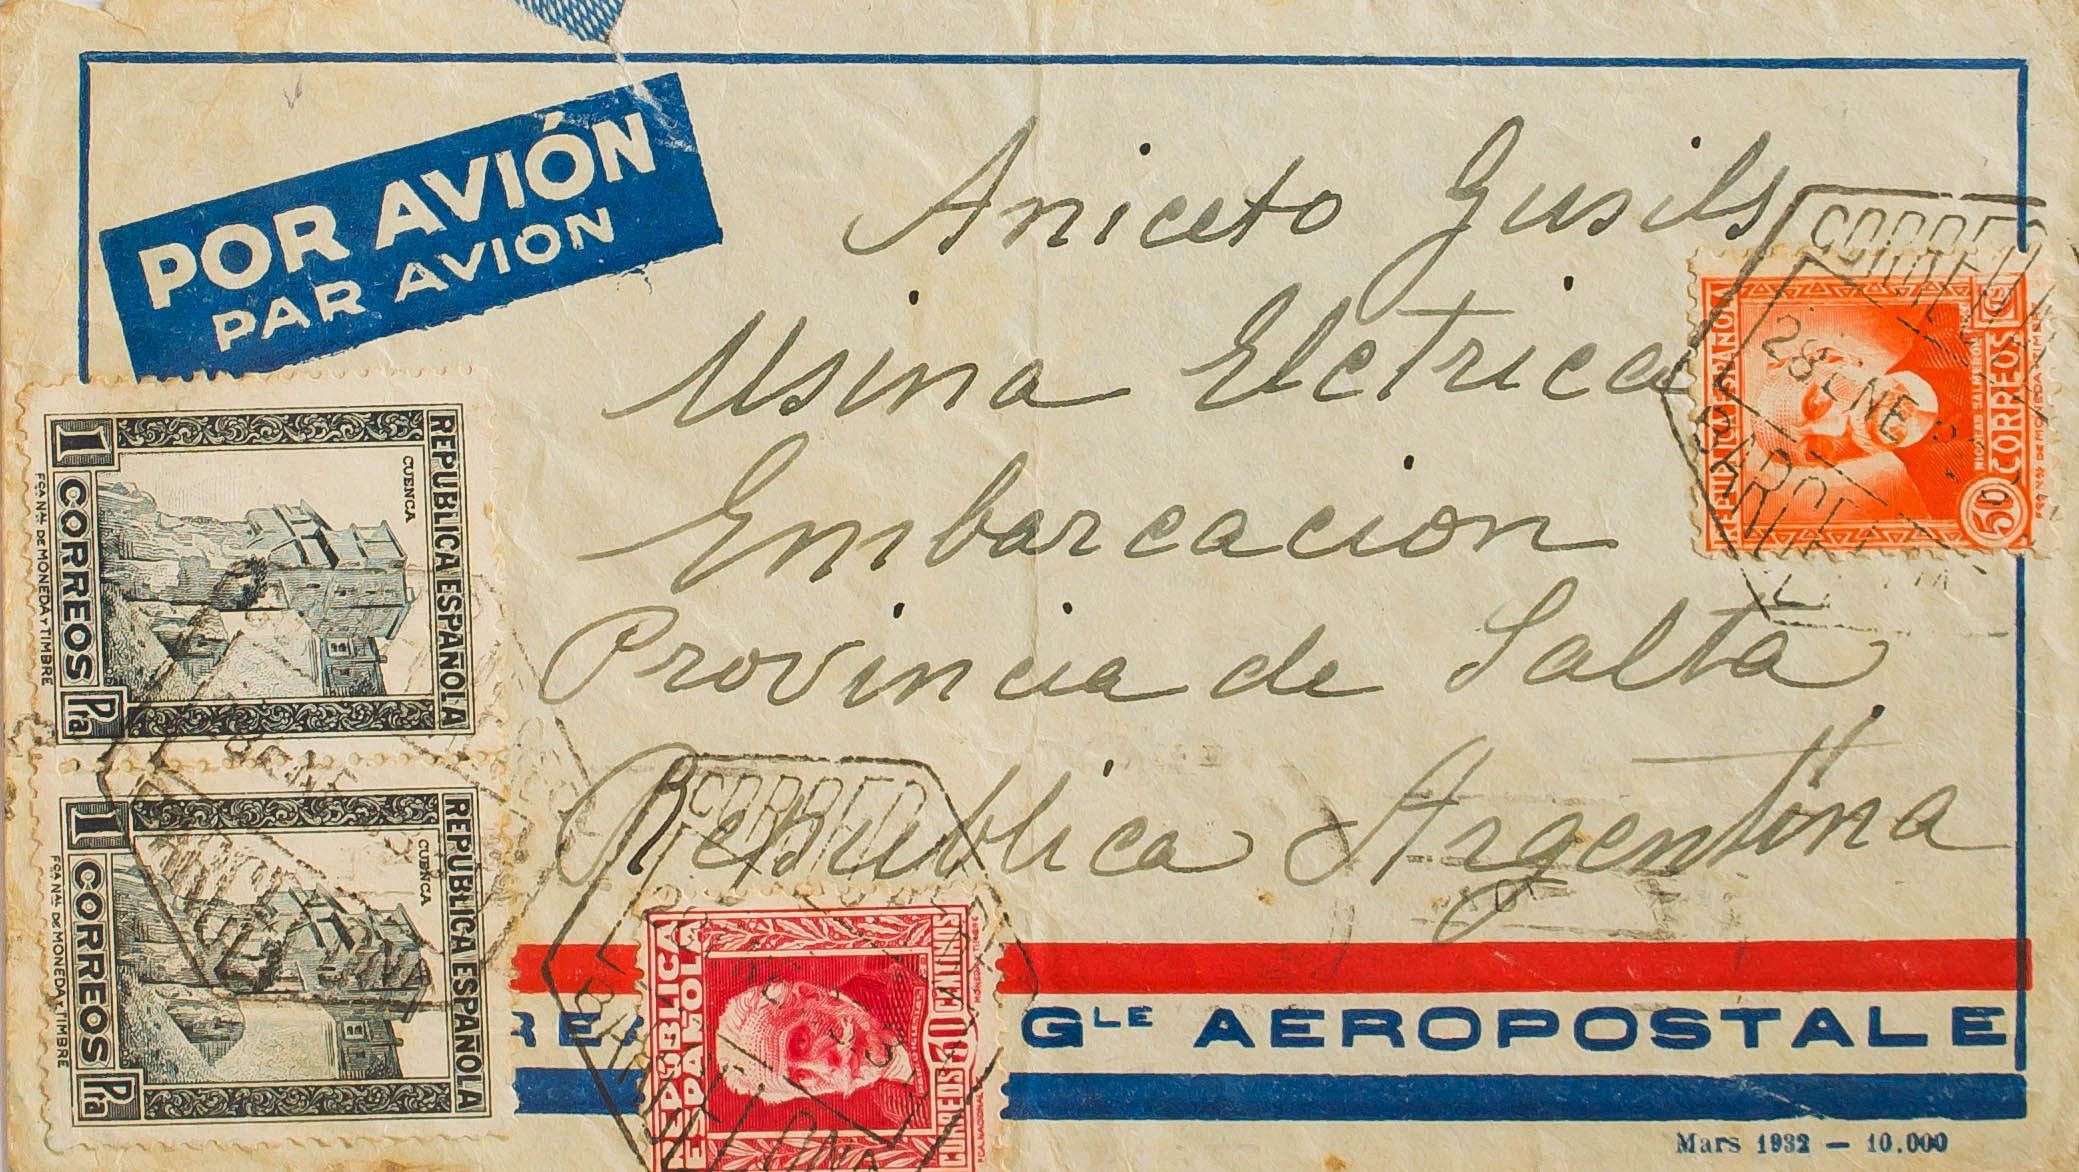 POR AVIÓN
PAR AVION
Aniceto Gusils
Usina Eletrica
Embarcacion
Provincia de Salta
Republica Argentina
CORREO
28 ENE
BARCELONA
REPUBLICA ESPAÑOLA
NICOLAS SALMERON
50
CORREOS
REPUBLICA ESPAÑOLA
CUENCA
1 CORREOS Pta
FCA NAL DE MONEDA Y TIMBRE
REPUBLICA ESPAÑOLA
CUENCA
1 CORREOS Pta
FCA NAL DE MONEDA Y TIMBRE
CORREO
BARCELONA
REPUBLICA
ESPAÑOLA
CORREOS 30 CENTIMOS
GLE AEROPOSTALE
Mars 1932 — 10.000